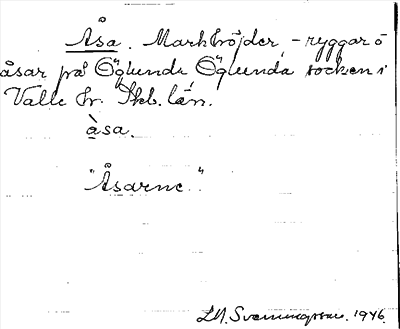 Åsa. Markhöjder, - ryggar o
åsar på Öglunda, Öglunda socken i
Valle hr. Skb. län.
åsa.
"Åsarne"
L.M. Svenungsson. 1946.